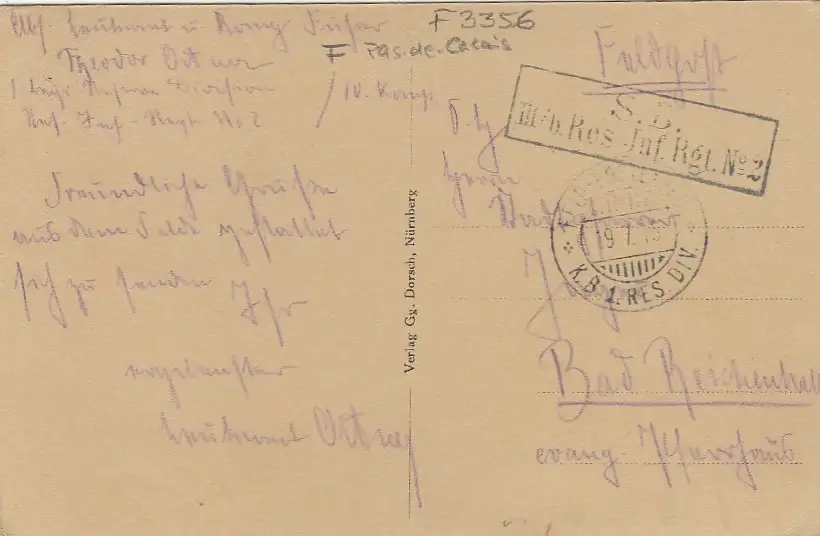 F 3356
F Pas. de. Calais
Abs. Leutnant u Komp. Führer
Theodor Ortner
Reserve Division
IV. Komp.
Res. Inf. Regt. No 2
Freundliche Grüße
aus dem Felde gestattet
sich zu senden Ihr
ergebenster
Leutnant Ortner
Verlag Gg. Dorsch, Nürnberg
Feldpost
S. B.
III/b. Res. Inf. Rgt. No 2
Herrn
19.7.15
K.B. 1. RES. DIV.
Bad Reichenhall
evang. Pfarrhaus